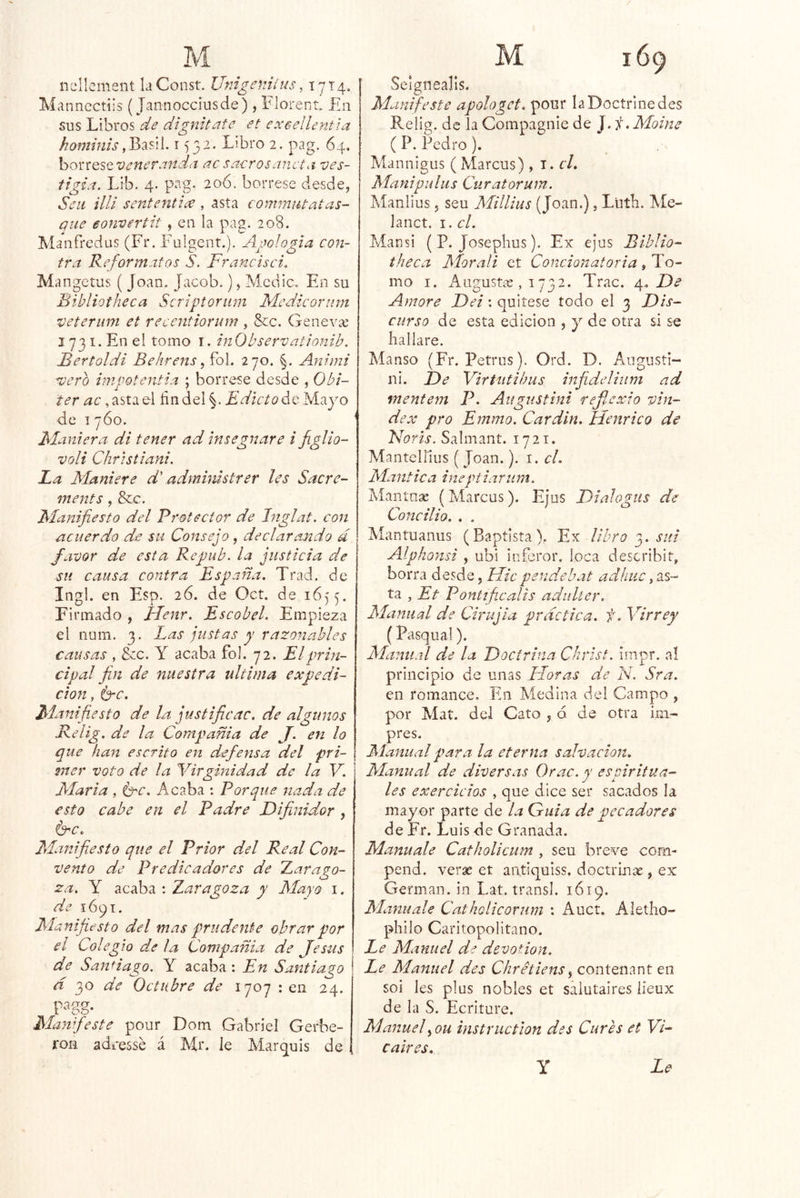 M
nellement la Const. Unigenitus, 1714.
Mannectiis (Jannocciusde), Florent. En
sus Libros de dignitate et exeellentia
hominis, Basil. 1532. Libro 2. pag. 64.
borrese veneranda ac sacrosancta ves-
tigia. Lib. 4. pag. 206. borrese desde,
Seu illi sententiæ, asta commutatas-
que eonvertit, en la pag. 208.
Manfredus (Fr. Fulgent.). Apologia con-
tra Reformatos S. Francisci.
Mangetus (Joan. Jacob.), Medic. En su
Bibliotheca Scriptorum Medicorum
veterum et recentiorum, &c. Genevæ
1731. En el tomo 1. in Observationib.
Bertoldi Behrens, fol. 270. §. Animi
verò impotentia; borrese desde, Obi-
ter ac, asta el fin del §. Edicto de Mayo
de 1760.
Maniera di tener ad insegnare i figlio-
voli Christiani.
La Maniere d' administrer les Sacre-
ments, &c.
Manifiesto del Protector de Inglat. con
acuerdo de su Consejo, declarando á
favor de esta Repub. la justicia de
su causa contra España. Trad. de
Ingl. en Esp. 26. de Oct. de 1655.
Firmado, Henr. Escobel. Empieza
el num. 3. Las justas y razonables
causas, &c. Y acaba fol. 72. El prin-
cipal fin de nuestra ultima expedi-
cion, &c.
Manifiesto de la justificac. de algunos
Relig. de la Compañia de J. en lo
que han escrito en defensa del pri-
mer voto de la Virginidad de la V.
Maria, &c. Acaba: Porque nada de
esto cabe en el Padre Difinidor,
&c.
Manifiesto que el Prior del Real Con-
vento de Predicadores de Zarago-
za. Y acaba: Zaragoza y Mayo 1.
de 1691.
Manifiesto del mas prudente obrar por
el Colegio de la Compañia de Jesus
de Santiago. Y acaba: En Santiago
á 30 de Octubre de 1707: en 24.
pagg.
Manifeste pour Dom Gabriel Gerbe-
ron adressè á Mr. le Marquis de
M 169
Seignealis.
Manifeste apologet. pour la Doctrine des
Relig. de la Compagnie de J. ℣. Moine
(P. Pedro).
Mannigus (Marcus), 1. cl.
Manipulus Curatorum.
Manlius, seu Millius (Joan.), Luth. Me-
lanct. 1. cl.
Mansi (P. Josephus). Ex ejus Biblio-
theca Morali et Concionatoria, To-
mo 1. Augustæ, 1732. Trac. 4. De
Amore Dei: quitese todo el 3 Dis-
curso de esta edicion, y de otra si se
hallare.
Manso (Fr. Petrus). Ord. D. Augusti-
ni. De Virtutibus infidelium ad
mentem P. Augustini reflexio vin-
dex pro Emmo. Cardin. Henrico de
Noris. Salmant. 1721.
Mantellius (Joan.). 1. cl.
Mantica ineptiarum.
Mantuæ (Marcus). Ejus Dialogus de
Concilio. . .
Mantuanus (Baptista). Ex libro 3. sui
Alphonsi, ubi inferor. loca describit,
borra desde, Hic pendebat adhuc, as-
ta, Et Pontificalis adulter.
Manual de Cirujia práctica. ℣. Virrey
(Pasqual).
Manual de la Doctrina Christ. impr. al
principio de unas Horas de N. Sra.
en romance. En Medina del Campo,
por Mat. del Cato, ó de otra im-
pres.
Manual para la eterna salvacion.
Manual de diversas Orac. y espiritua-
les exercicios, que dice ser sacados la
mayor parte de la Guia de pecadores
de Fr. Luis de Granada.
Manuale Catholicum, seu breve com-
pend. veræ et antiquiss. doctrinæ, ex
German. in Lat. transl. 1619.
Manuale Catholicorum: Auct. Aletho-
philo Caritopolitano.
Le Manuel de devotion.
Le Manuel des Chrêtiens, contenant en
soi les plus nobles et salutaires lieux
de la S. Ecriture.
Manuel, ou instruction des Curès et Vi-
caires.
Y Le